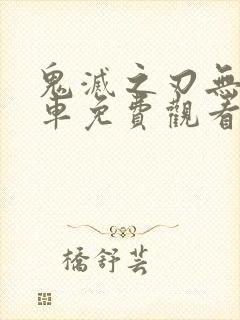 鬼滅之刃無
車免費觀看
橋舒芸